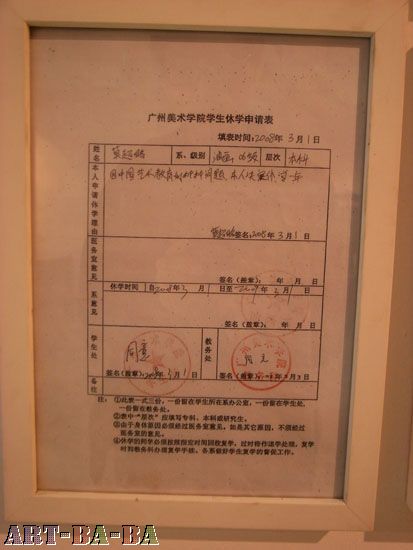 广州美术学院学生休学申请表
填表时间:2008年3月1日
姓名 系、级别 油画 06级 层次 本科
本人申请休学理由 因中国艺术教育 问题,本人决定休学一年
签名:2008年3月1日
医务室意见
签名(盖章): 年 月 日
休学时间 自2008年3月1日至2009年3月1日
系意见
签名(盖章): 年 月 日
学生处 同意 教务处
签名(盖章):2008年3月1日 签名(盖章): 年3月3日
备注
注: ①此表一式三份,一份留在学生所在系办公室,一份留在学生处,
一份留在教务处。
②表中“层次”应填写专科、本科或研究生。
③由于身体原因必须经过医务室意见,如是其它原因,不须经过
医务室的意见。
④休学的同学必须按照指定时间回校复学,过时将作退学处理,复学
时到教务科办理复学手续,各系做好学生复学的督促工作。
ART-BA-BA